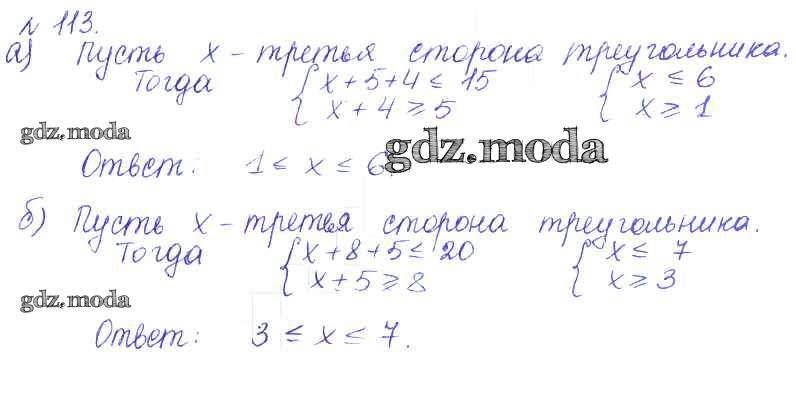 № 113.
а) Пусть x - третья сторона треугольника.
Тогда { x + 5 + 4 ≤ 15 { x ≤ 6
x + 4 ≥ 5 x ≥ 1
gdz.moda
Ответ: 1 ≤ x ≤ 6.
gdz.moda
б) Пусть x - третья сторона треугольника.
Тогда { x + 8 + 5 ≤ 20 { x ≤ 7
x + 5 ≥ 8 x ≥ 3
gdz.moda
Ответ: 3 ≤ x ≤ 7.